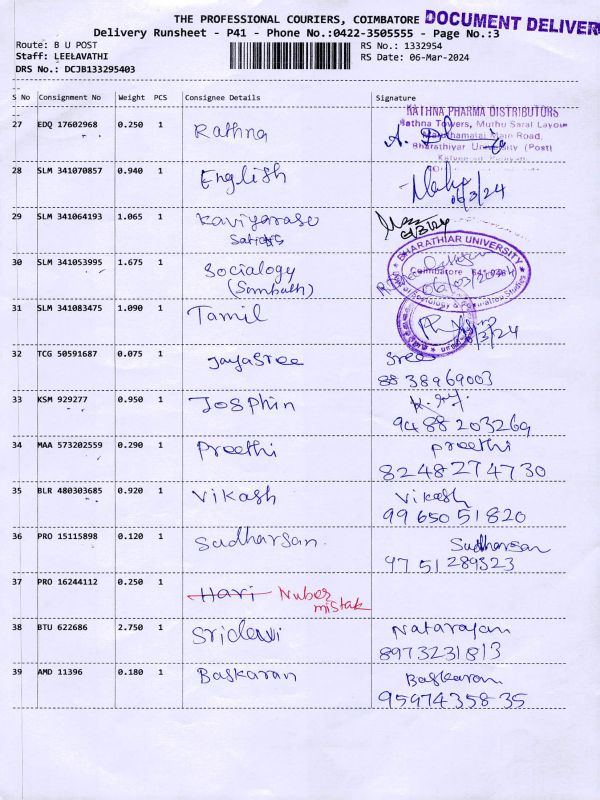 THE PROFESSIONAL COURIERS, COIMBATORE DOCUMENT DELIVER
Delivery Runsheet - P41 - Phone No.:0422-3505555 - Page No.:3
Route: B U POST
Staff: LEELAVATHI
DRS No.: DCJB133295403
RS No.: 1332954
RS Date: 06-Mar-2024
S No Consignment No Weight PCS Consignee Details Signature
27 EDQ 17602968 0.250 1 Rathna
RATHNA PHARMA DISTRIBUTORS
Rathna Towers, Muthu Saral Layout
Main Road,
Bharathiyar University (Post)
28 SLM 341070857 0.940 1 English
06/3/24
29 SLM 341064193 1.065 1 Kaviyarasu
30 SLM 341053995 1.675 1 Socialogy
(Sambath)
BHARATHIAR UNIVERSITY
Coimbatore
06/03/2024
31 SLM 341083475 1.090 1 Tamil
6/3/24
32 TCG 50591687 0.075 1 Jayasree Sree
8838969003
33 KSM 929277 0.950 1 Josphin
9488203269
34 MAA 573202559 0.290 1 Preethi Preethi
8248274730
35 BLR 480303685 0.920 1 Vikash Vikash
9965051820
36 PRO 15115898 0.120 1 Sudharsan. Sudharsan
9751289323
37 PRO 16244112 0.250 1 Hari Nuber
mistak
38 BTU 622686 2.750 1 Sridevi Natarajan
8973231813
39 AMD 11396 0.180 1 Baskaran Baskaran
9597435835